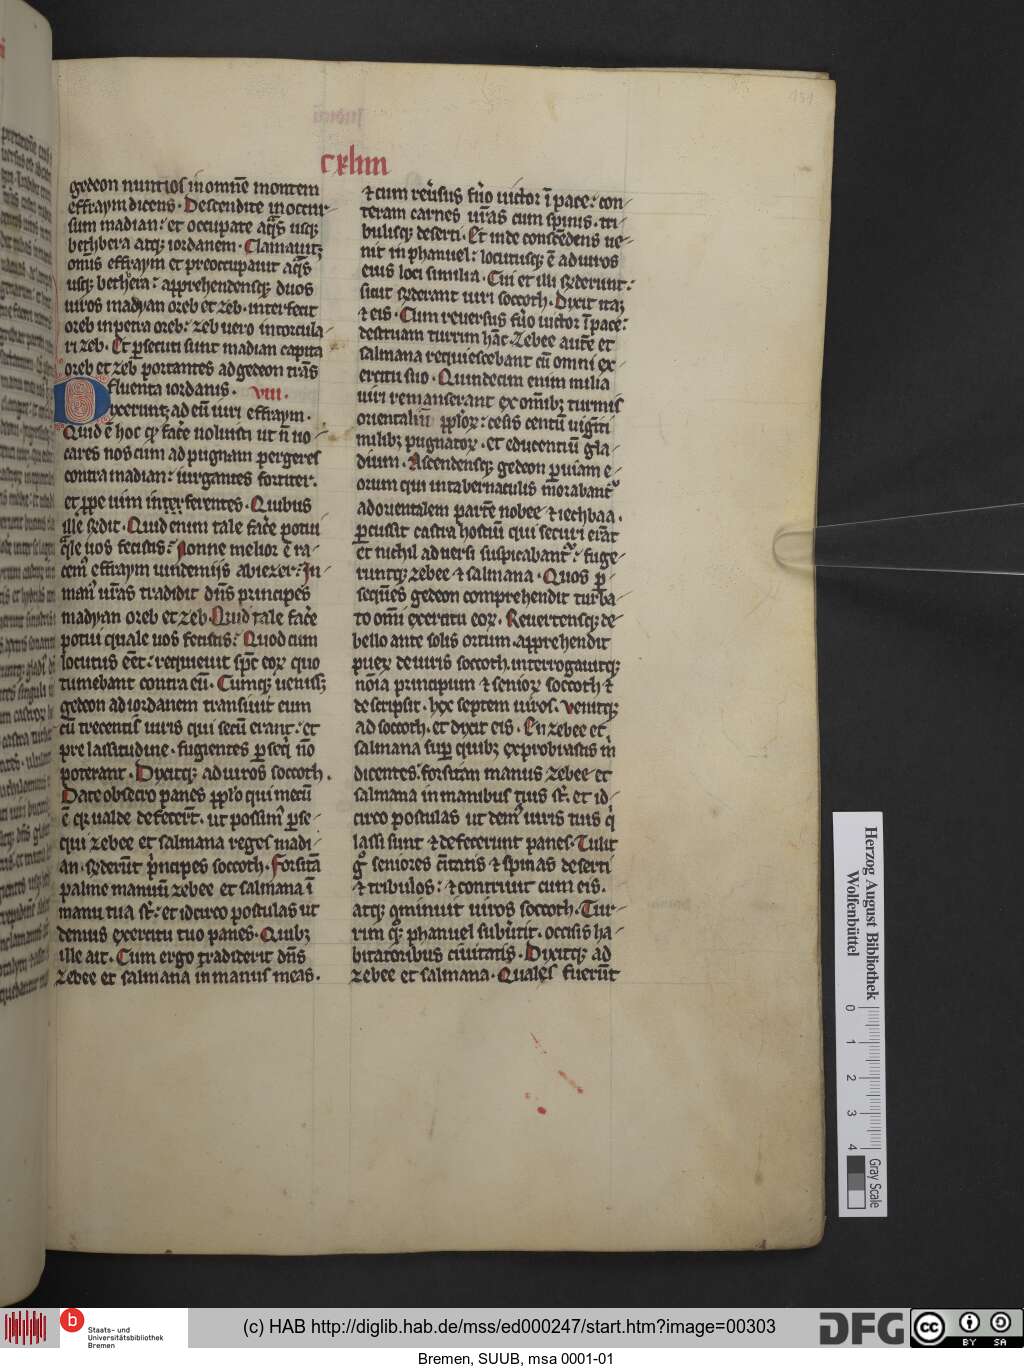 cxliiii
gedeon nuntios in omnē montem
effraym dicens. Descendite in occur-
sum madian: et occupate aq̄s usq;
bethbera atq; iordanem. Clamauitq;
omīs effraym et preoccupauit aq̄s
usq; bethera: apprehendensq; duos
uiros madyan oreb et zeb. interfecit
oreb in petra oreb: zeb uero in torcula-
ri zeb. Et ꝑsecuti sunt madian capita
oreb et zeb portantes ad gedeon trās
fluenta iordanis. viii.
Dixerunt; ad eū uiri effraym.
Quid ē hoc qđ fac̄e uoluisti ut n̄ uo-
cares nos cum ad pugnam pergeres
contra madian: iurgantes fortiter.
et ꝓpe uim inferentes. Quibus
ille
 Quid enim tale fac̄e potui
q̄le uos fecistis: Nonne melior ē ra-
cem⁹ effraym uindemijs abiezer: In
man⁹ ur̄as tradidit dn̄s principes
madyan oreb et zeb. Quid tale fac̄e
potui quale uos fecistis: Quod cum
locutus eēt: requieuit sp̄c eoꝝ quo
tumebant contra eū. Cumq; uenissz
gedeon ad iordanem transiuit eum
cū trecentis uiris qui secū erant: et
pre lassitudine. fugientes ꝑseq̄ nō
poterant. Dixitq; ad uiros soccoth.
Date obsecro panes ꝓplo qui mecū
ē qꝛ ualde defecer̄t. ut possim⁹ ꝑse-
qui zebee et salmana reges madi-
an. 
 pⁱncipes soccoth. Forsitā
palme manuū zebee et salmana ī
manu tua st̄: et idcirco postulas ut
demus exercitu tuo panes. Quibꝫ
ille ait. Cum ergo tradiderit dn̄s
zebee et salmana in manus meas.
⁊ cum reūsus fūo uictor ī pace: con-
teram carnes ur̄as cum spinis. tri-
bulisq; deserti. Et inde conscēdens ue-
nit in phanuel: locutusq; ē ad uiros
eius loci similia. Cui et illi responderunt:
sicut responderant uiri soccoth. Dixit itaq;
⁊ eis. Cum reuersus fūo uictor ī pace:
destruam turrim hāc. Zebee autē et
salmana requiescebant cū omni ex-
ercitu suo. Quindecim enim milia
uiri remanserant ex omībꝫ turmis
orientaliū ꝓploꝝ: cesis centū uigīti
milibꝫ pugnatoꝝ. et educentiū gla-
dium. Ascendensq; gedeon ꝑ uiam e-
orum qui in tabernaculis morabant᷑
ad orientalem partē nobee ⁊ iechbaa.
ꝑcussit castra hostiū qui securi erāt
et nichil aduersi suspicabant᷑: fuge-
runtq; zebee ⁊ salmana. Quos ꝑ-
sequēs gedeon comprehendit turba-
to omī exercitu eoꝝ. Reuertensq; de
bello ante solis ortum. apprehendit
pueꝝ de uiris soccoth. interrogauitq;
nōia principum ⁊ senioꝝ soccoth ⁊
descripsit. lxx septem uiros. Venitq;
ad soccoth. et dixit eis. En zebee et
salmana sup quibꝫ exprobrastis m̄
dicentes. forsitan manus zebee et
salmana in manibus tuis st̄. et id-
circo postulas ut dem⁹ uiris tuis qⁱ
lassi sunt ⁊ defecerunt panes. Tulit
gͦ seniores ciuitatis ⁊ spinas deserti
⁊ tribulos: ⁊ contriuit cum eis.
atq; ꝯminuit uiros soccoth. Tur-
rim qͦꝫ phanuel subūtit. occisis ha-
bitatoribus ciuitatis. Dixitq; ad
zebee et salmana. Quales fuerūt
Herzog August Bibliothek
Wolfenbüttel
0 1 2 3 4
Gray Scale
b Staats- und
Universitätsbibliothek
Bremen
(c) HAB http://diglib.hab.de/mss/ed000247/start.htm?image=00303
DFG
cc BY SA
Bremen, SUUB, msa 0001-01